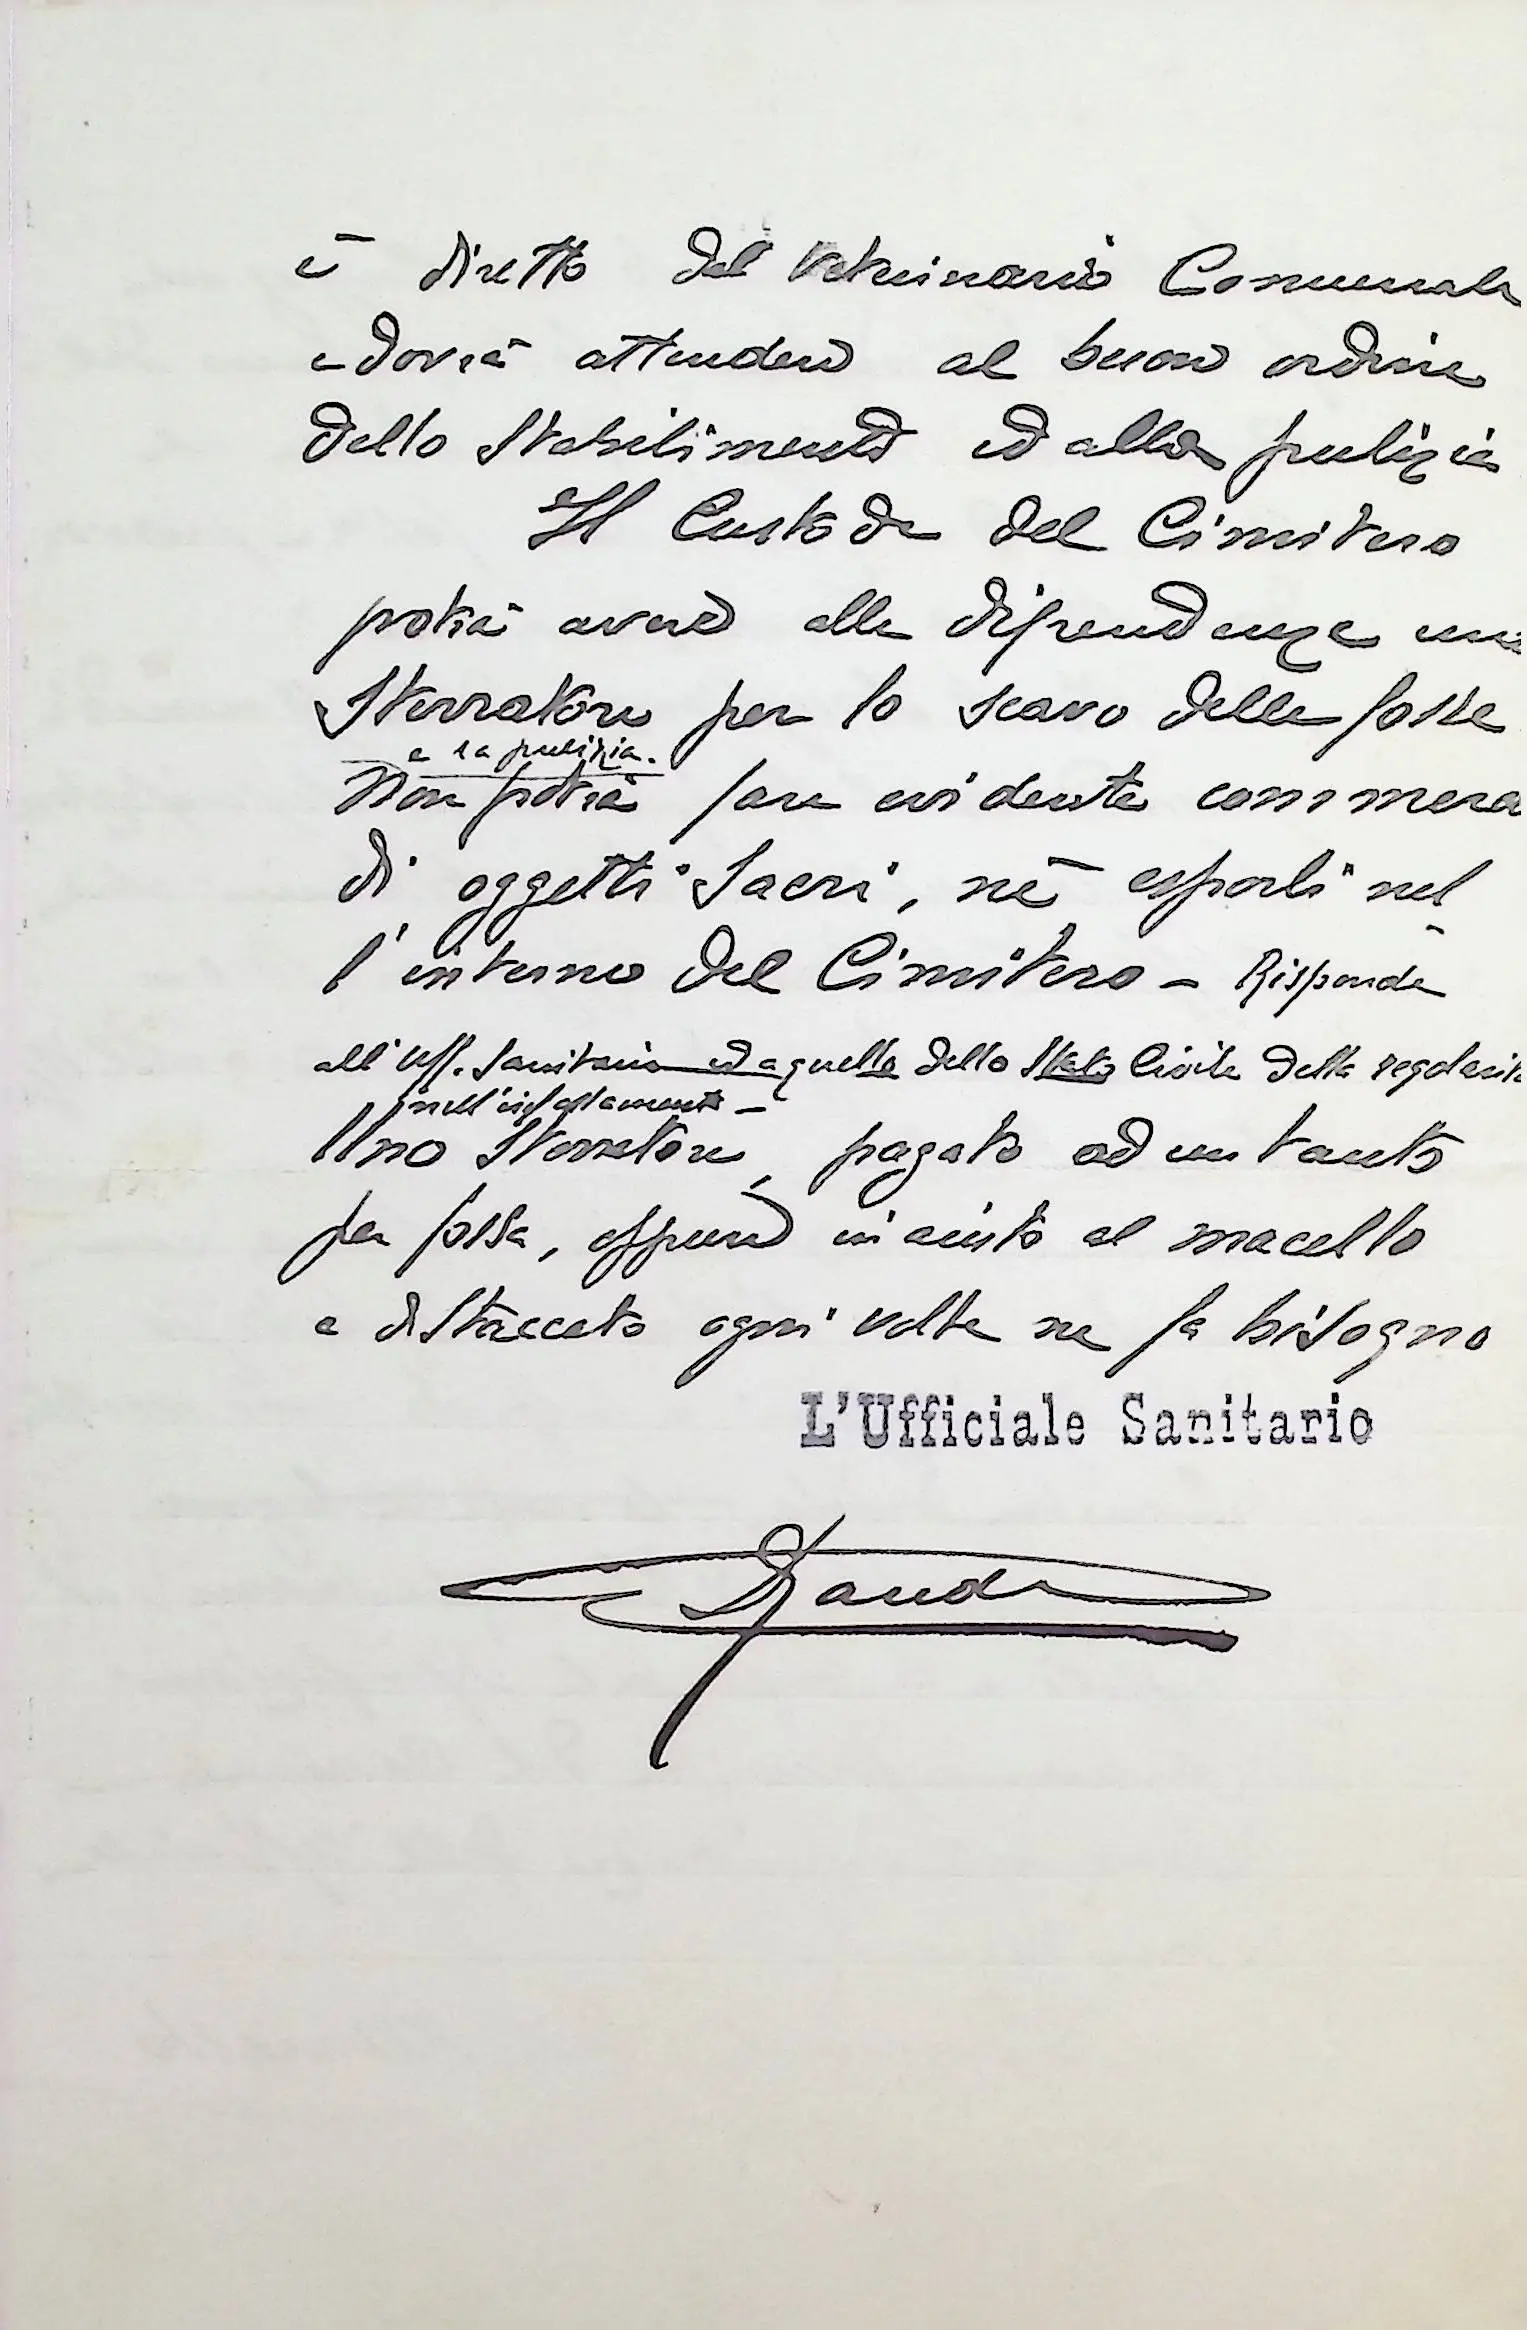 è diretto dal Veterinario Comunale
e dovrà attendere al buon ordine
dello stabilimento ed alla pulizia
Il Custode del Cimitero
potrà avere alle dipendenze uno
Sterratore per lo scavo delle fosse
e la pulizia.
Non potrà fare evidente commerc
di oggetti Sacri, nè esporli nel
l'interno del Cimitero - Risponde
all'Uff. Sanitario ed a quello dello Stato Civile della regolarit
nell'
Uno Sterratore, pagato ad un tanto
per fossa, oppure in aiuto al macello
e distaccato ogni volta ne fa bisogno
L'Ufficiale Sanitario